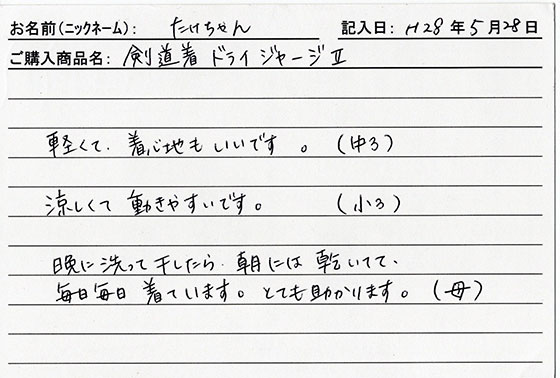 お名前(ニックネーム): たけちゃん 記入日: H28年5月28日
ご購入商品名: 剣道着 ドライジャージⅡ
軽くて、着心地もいいです。(中3)
涼しくて動きやすいです。(小3)
晩に洗って干したら、朝には乾いてて、
毎日毎日着ています。とても助かります。(母)